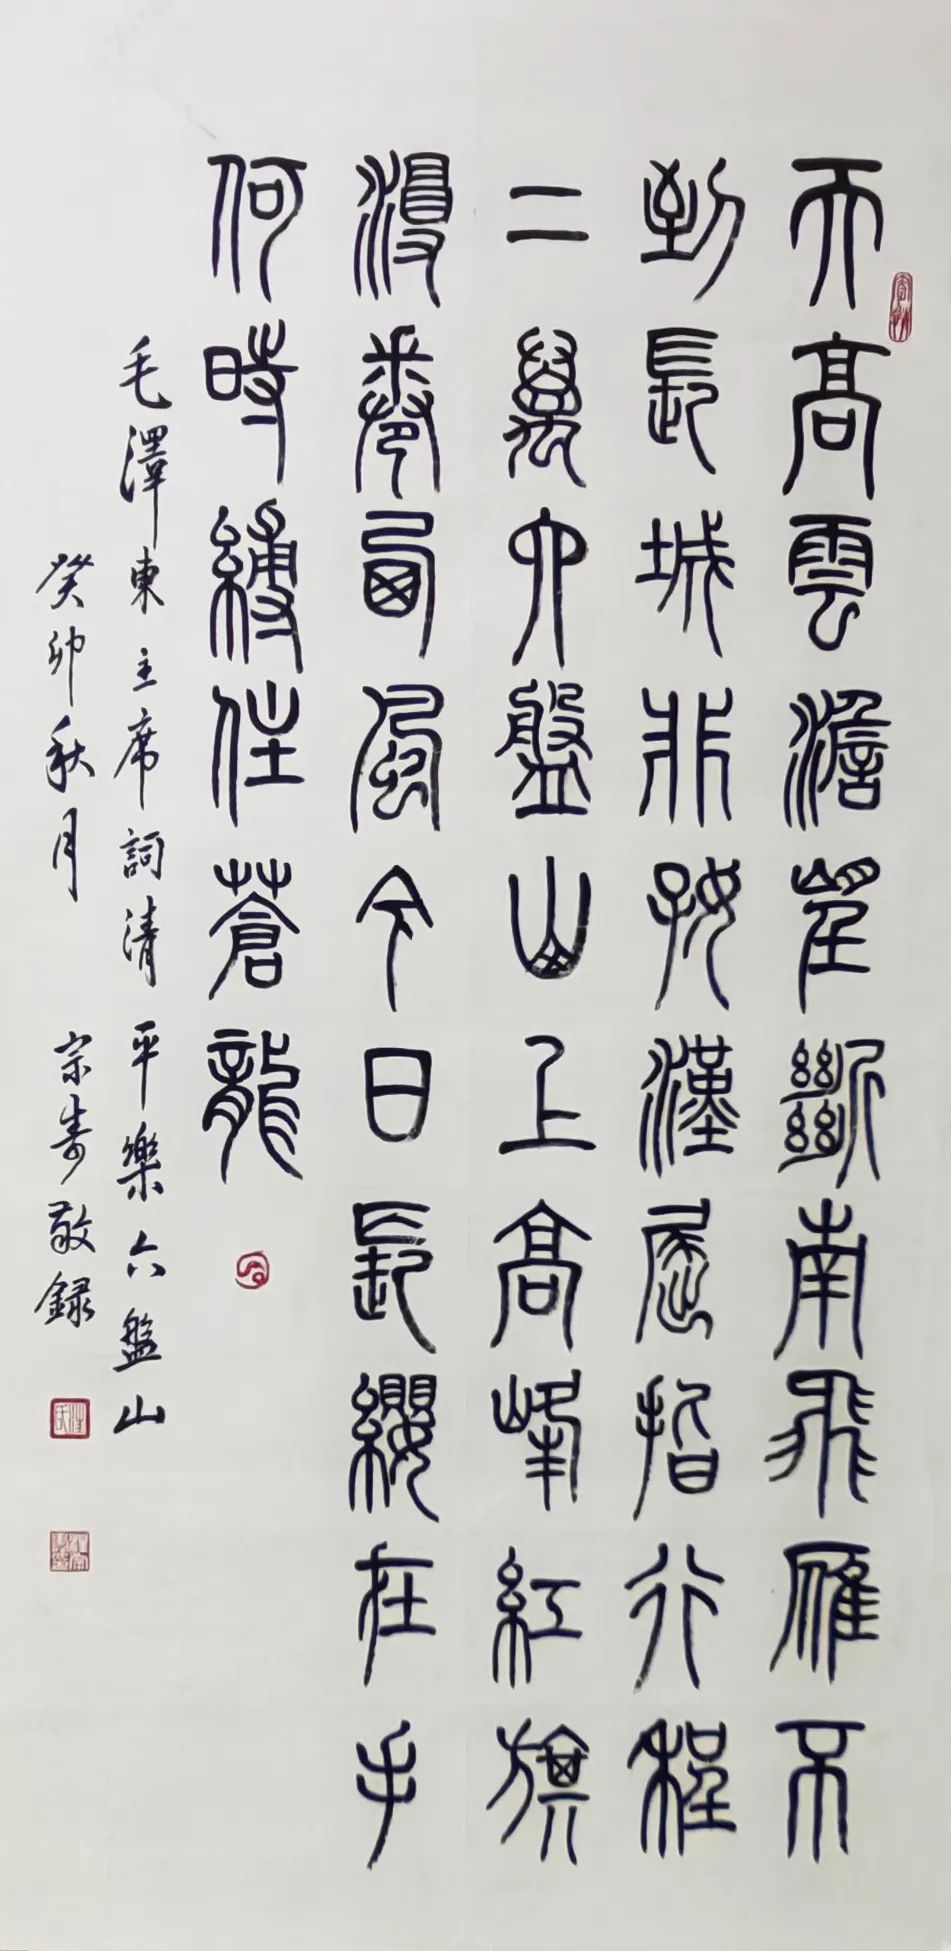 天高雲澹望斷南飛雁不
到長城非好漢屈指行程
二萬六盤山上高峰紅旗
漫卷西風今日長纓在手
何時縛住蒼龍
毛澤東主席詞清平樂六盤山
癸卯秋月 宗寿敬録